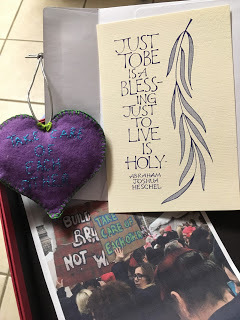 JUST
TO BE
IS A
BLESS-
ING
JUST
TO
LIVE
IS
HOLY
ABRAHAM
JOSHUA
HESCHEL
BUILD
BR
NOT W
TAKE
CARE OF
EACH OTHER